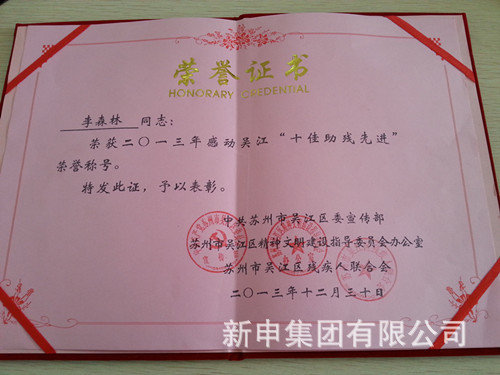 荣誉证书
HONORARY CREDENTIAL
李森林 同志:
荣获二〇一三年感动吴江“十佳助残先进”
荣誉称号。
特发此证,予以表彰。
中共苏州市吴江区委宣传部
苏州市吴江区精神文明建设指导委员会办公室
苏州市吴江区残疾人联合会
二〇一三年十二月三十日
新申集团有限公司